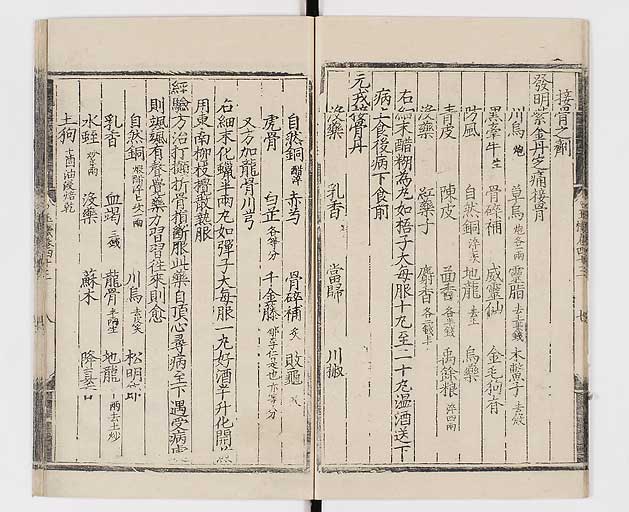 接骨之劑
發明紫金丹芝痛接骨
川烏炮 草烏炮各二兩 靈脂去土 木鱉子去殼
黑牽牛生 骨碎補 威靈仙 金毛狗脊
防風 自然銅淬 地龍去土 烏藥
青皮 陳皮 茴香 禹餘粮淬四兩
沒藥 紅藥子 麝香
右細末醋糊為丸如梧子大每服十丸至二十丸温酒送下
病上食後病下食前
元戎接骨丹
沒藥 乳香 當歸 川椒
自然銅醋淬 赤芍 骨碎補炙 敗龜炙
虎骨 白芷各等分 千金藤郁李仁是也亦等分
又方加龍骨川芎
右細末化蠟半兩丸如彈子大每服一丸好酒半升化開
用東南柳枝攪散熱服
經驗方治打撲折骨損斷服此藥自頂心尋病至下遇受病處
則颯颯有聲覺藥力習習往來則愈
自然銅 川烏 松明節
乳香 血竭三錢 龍骨半兩 地龍一兩去土炒
水蛭 沒藥 蘇木 降真
土狗 油浸焙乾